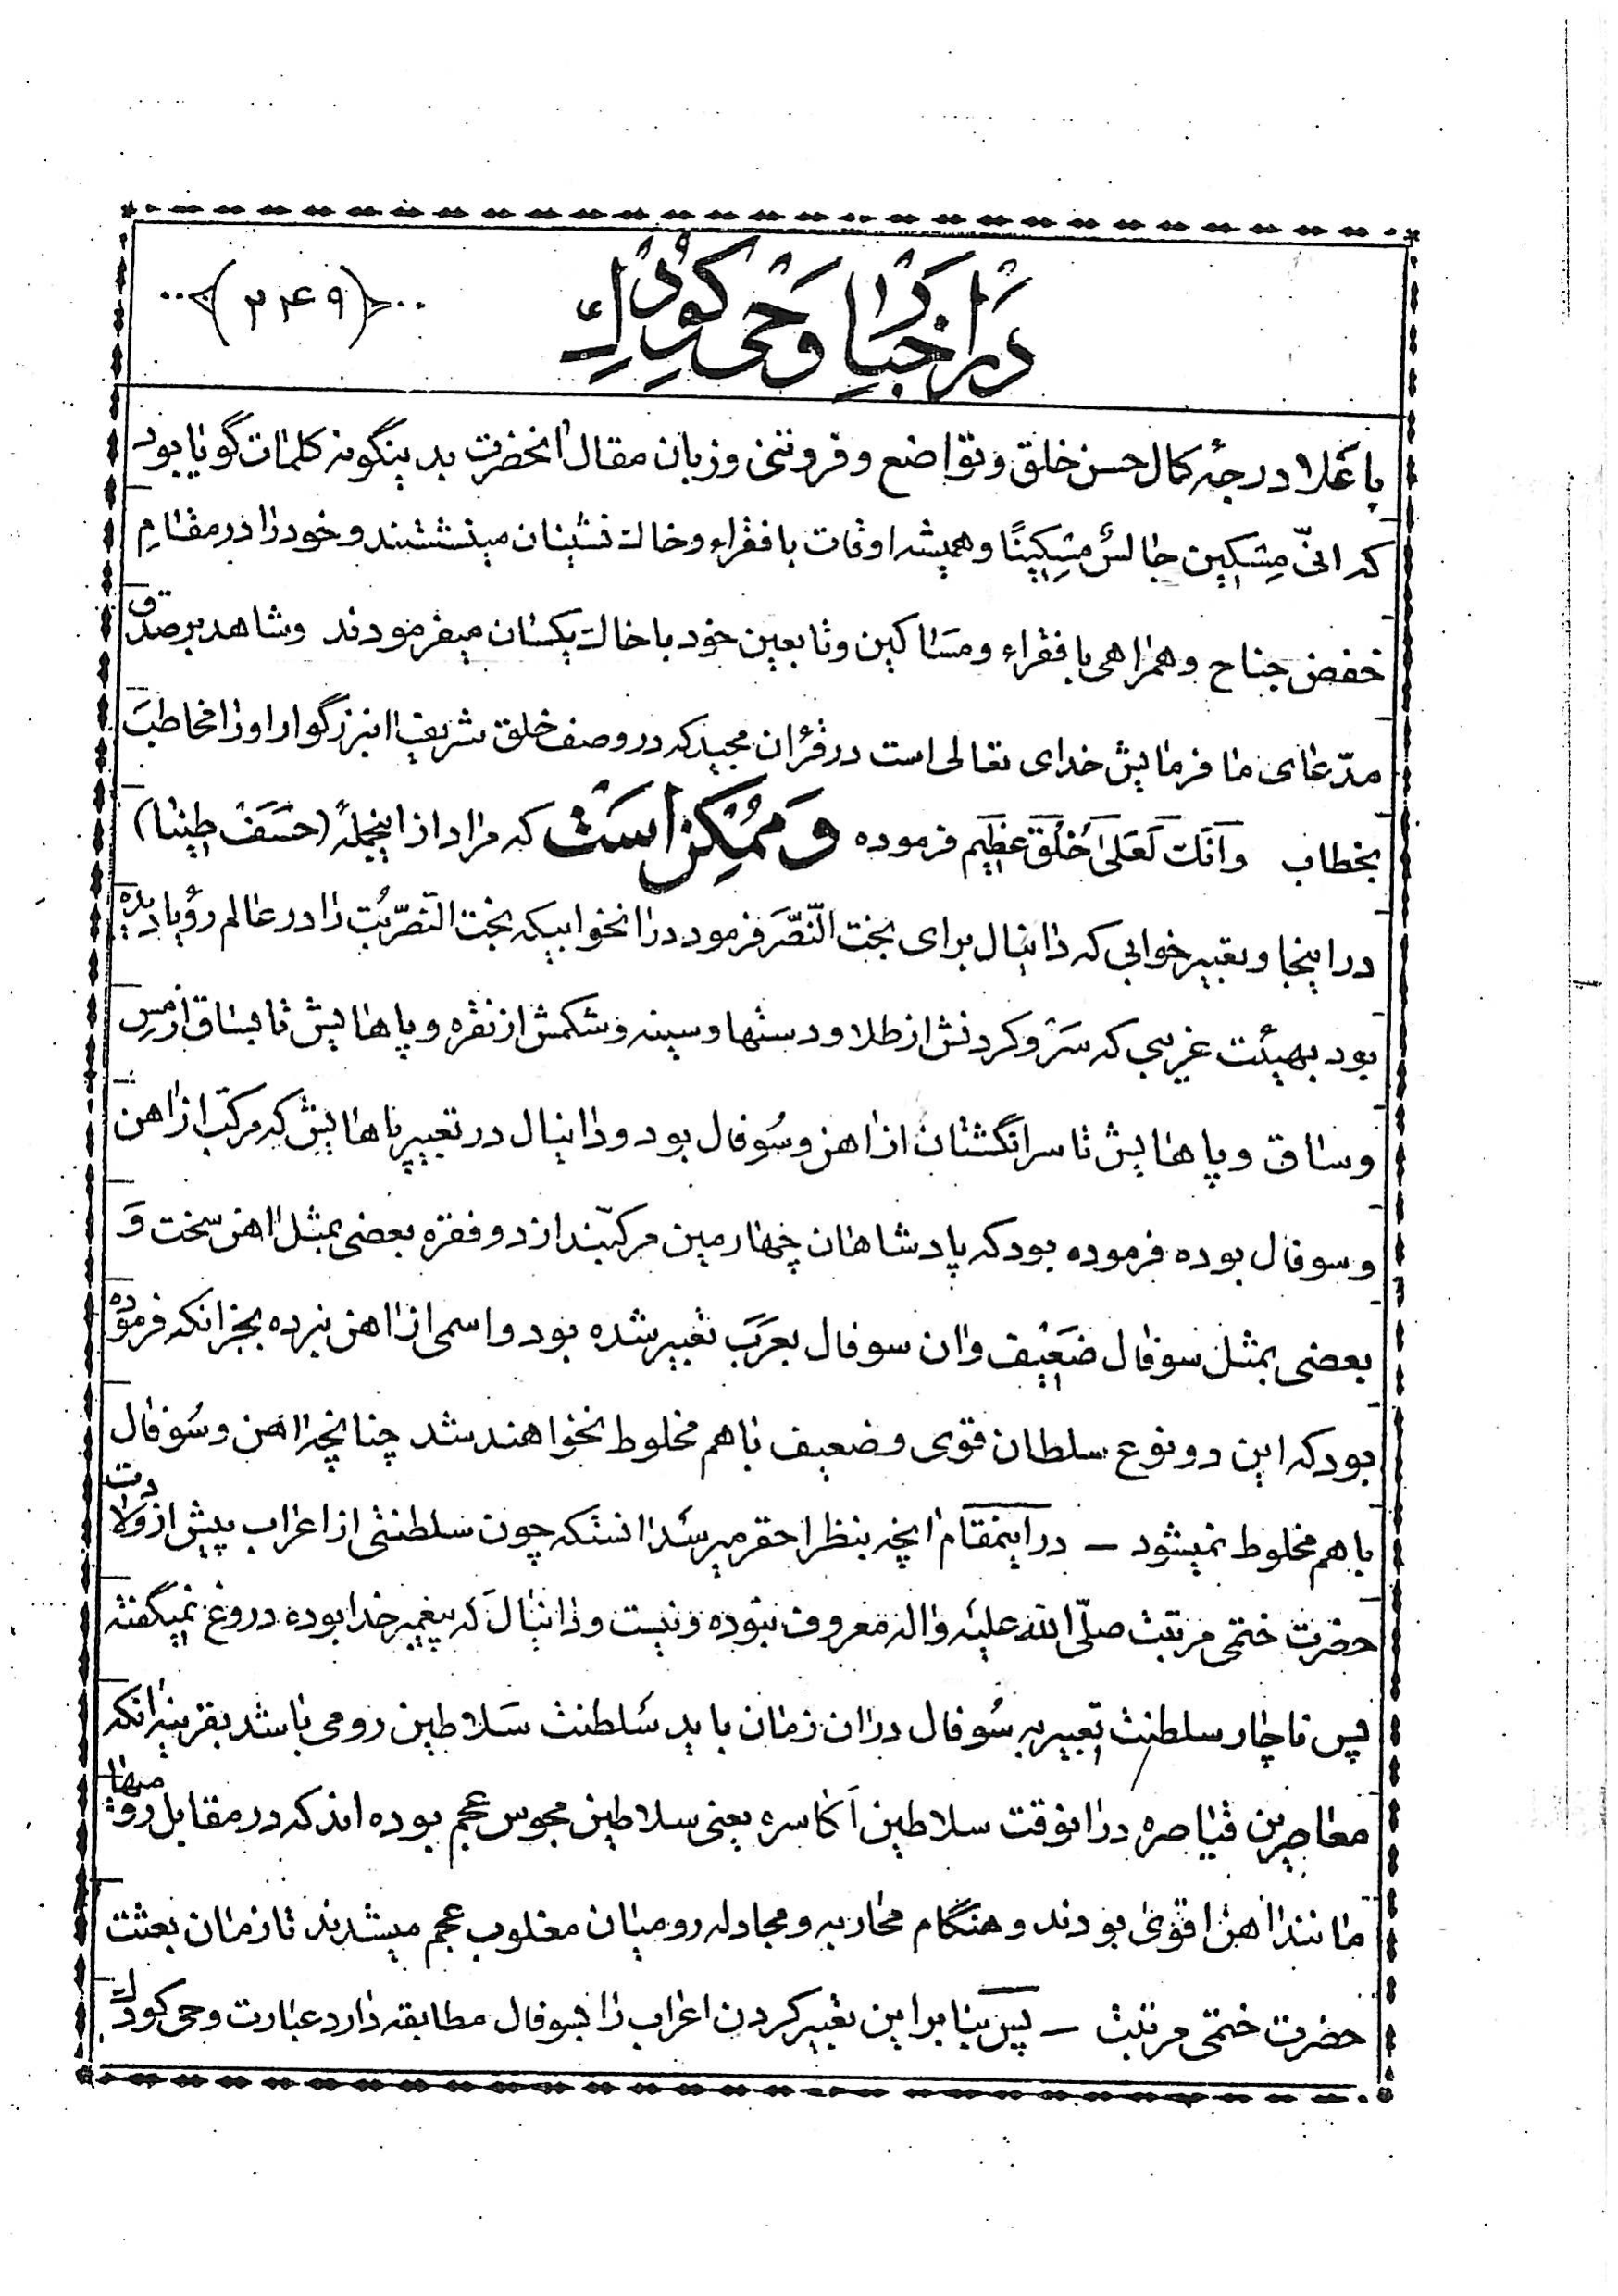 در اخبار وحی کودک
(۲۴۹)
باعلا درجهٔ کمال حسن خلق و تواضع و فروتنی و زبان مقال انحضرت بدینگونه کلمات گویا بود
که انّی مِسکین جالسُ مِسکینًا و همیشه اوقات با فقراء و خاک نشینان مینشستند و خود را در مقامِ
خفض جناح و همراهی با فقراء و مساکین و تابعین خود با خاک یکسان میفرمودند و شاهد بر صدق
مدّعای ما فرمایش خدای تعالی است در قرٰان مجید که در وصف خلق شریف انبزرگوار او را مخاطب
بخطاب وَانّکَ لَعَلیٰ خُلُقٍ عَظیم فرموده وَ مُمکِن اَستْ که مراد از اینجملهٔ (حَسَفْ طینا)
در اینجا و تعبیر خوابی که دانیال برای بخت النّصّر فرمود در انخوابیکه بخت النّصّر بُت را در عالم رؤیا دیده
بود بهیئت غریبی که سَر و گردنش از طلا و دستها و سینه و شکمش از نقره و پاهایش تا بساق از مس
و ساق و پاهایش تا سر انگشتان از اهن و سُوفال بود و دانیال در تعبیر پاهایش که مرکب از اهن
و سوفال بوده فرموده بود که پادشاهان چهارمین مرکبّند از دو فقره بعضی بمثل اهن سخت وَ
بعضی بمثل سوفال ضَعیف وان سوفال بعَرَبَ تعبیر شده بود و اسمی از اهن نبرده بجز انکه فرموده
بود که این دو نوع سلطان قوی و ضعیف باهم مخلوط نخواهند شد چنانچه اهن و سُوفال
باهم مخلوط نمیشود – در اینمقام انچه بنظر احقر میرسد انستکه چون سلطنتی از اعراب پیش از ولادت
حضرت ختمی مرتبت صلّی الله علیه واله معروف نبوده و نیست و دانیال که پیغمبر خدا بوده دروغ نمیگفته
پس ناچار سلطنت تعبیر به سُوفال در ان زمان باید سَلطنت سَلاطین رومی باشد بقرینه انکه
معاصرین قیاصره در انوقت سلاطین اَکاسره یعنی سلاطین مجوس عجم بوده اند که در مقابل رومیها
مانند اهن اقوی بودند و هنگام محاربه و مجادله رومیان مغلوب عجم میشدند تا زمان بعثت
حضرت ختمی مرتبت – پس بنا براین تعبیر کردن اعراب را بسوفال مطابقه دارد عبارت وحی کودک